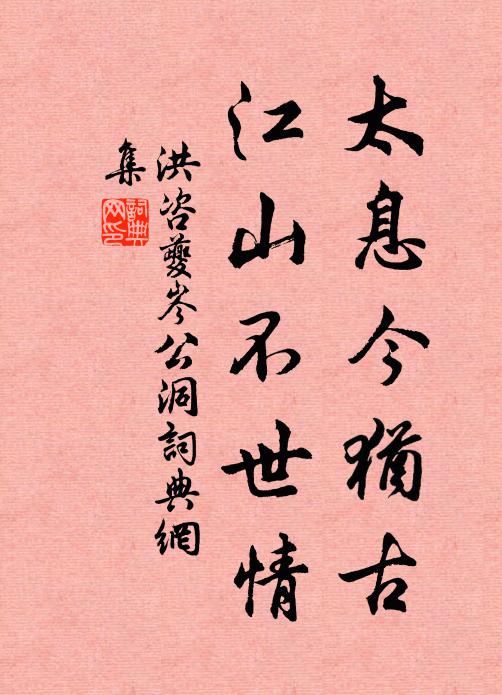 太息今猶古
江山不世情
洪咨夔岑公洞詞典網
集
詞典網印